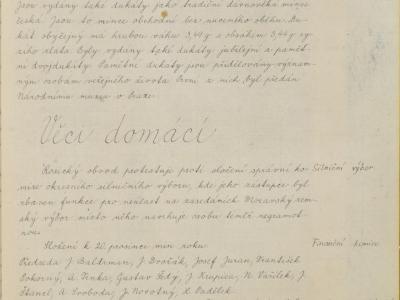 Jsou vydány také dukáty jako tradiční darovněra mince
česká. Jsou to mince obchodní bez nuceného oběhu. Du-
kát obyčejný má hrubou váhu 3,49 g s obsahem 3,44 g ry-
zího zlata. Byly vydány také dukáty jubilejní a památ-
ní dvojdukáty. Památné dukáty jsou přidělovány význam-
ným osobám veřejného života. První z nich byl předán
Národnímu muzeu v Praze.
Věci domácí
Rosický obvod protestuje proti složení správní ko- Silniční výbor
mise okresního silničního výboru, kde jeho zástupce byl
zbaven funkce pro neúčast na zasedáních. Moravský zem-
ský výbor místo něho navrhuje osobu téměř negramot-
nou.
Složení k 20. prosince min. roku: Finanční komise
Předseda J. Baltrman, J. Dvořák, Josef Juran, František
Pokorný, A. Trnka, Gustav Šedý, J. Krupica, N. Vašíček, J.
A. Svoboda, J. Novotný, K. Vadílek